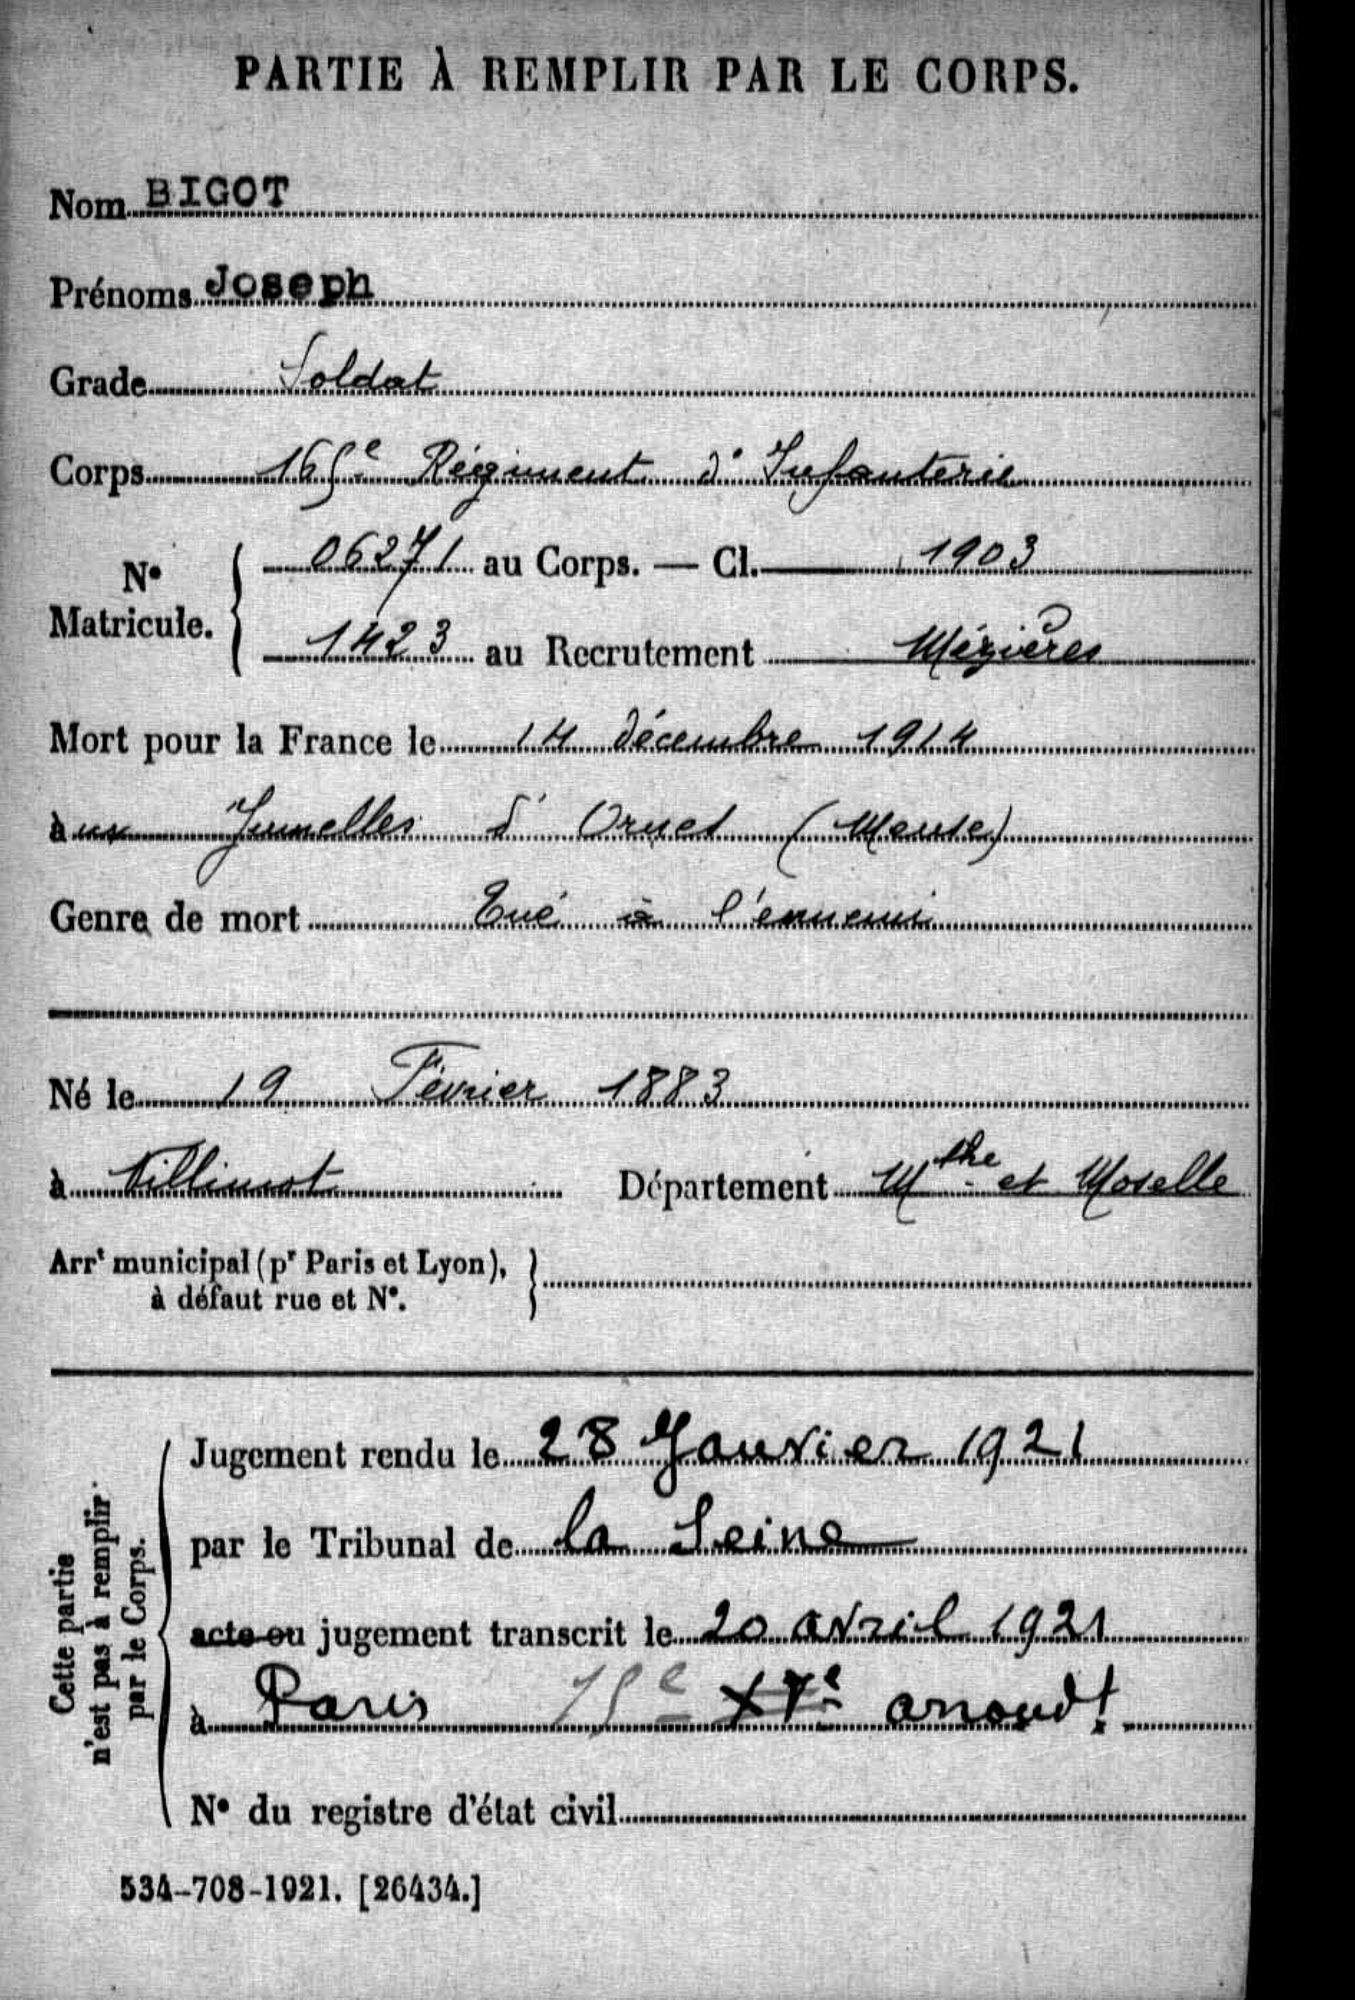 PARTIE À REMPLIR PAR LE CORPS.
Nom BIGOT
Prénoms Joseph
Grade Soldat
Corps 165e Régiment d'Infanterie
No Matricule. { 06271 au Corps. — Cl. 1903
1423 au Recrutement Mézières
Mort pour la France le 14 décembre 1914
aux Jumelles d'Ornes (Meuse)
Genre de mort Tué à l'ennemi
Né le 19 Février 1883
à Département Mthe et Moselle
Arrt municipal (pr Paris et Lyon),
à défaut rue et No.
Cette partie
n'est pas à remplir
par le Corps.
Jugement rendu le 28 Janvier 1921
par le Tribunal de la Seine
acte ou jugement transcrit le 20 avril 1921
à Paris 15e XVe arrondt.
No du registre d'état civil
534-708-1921. [26434.]